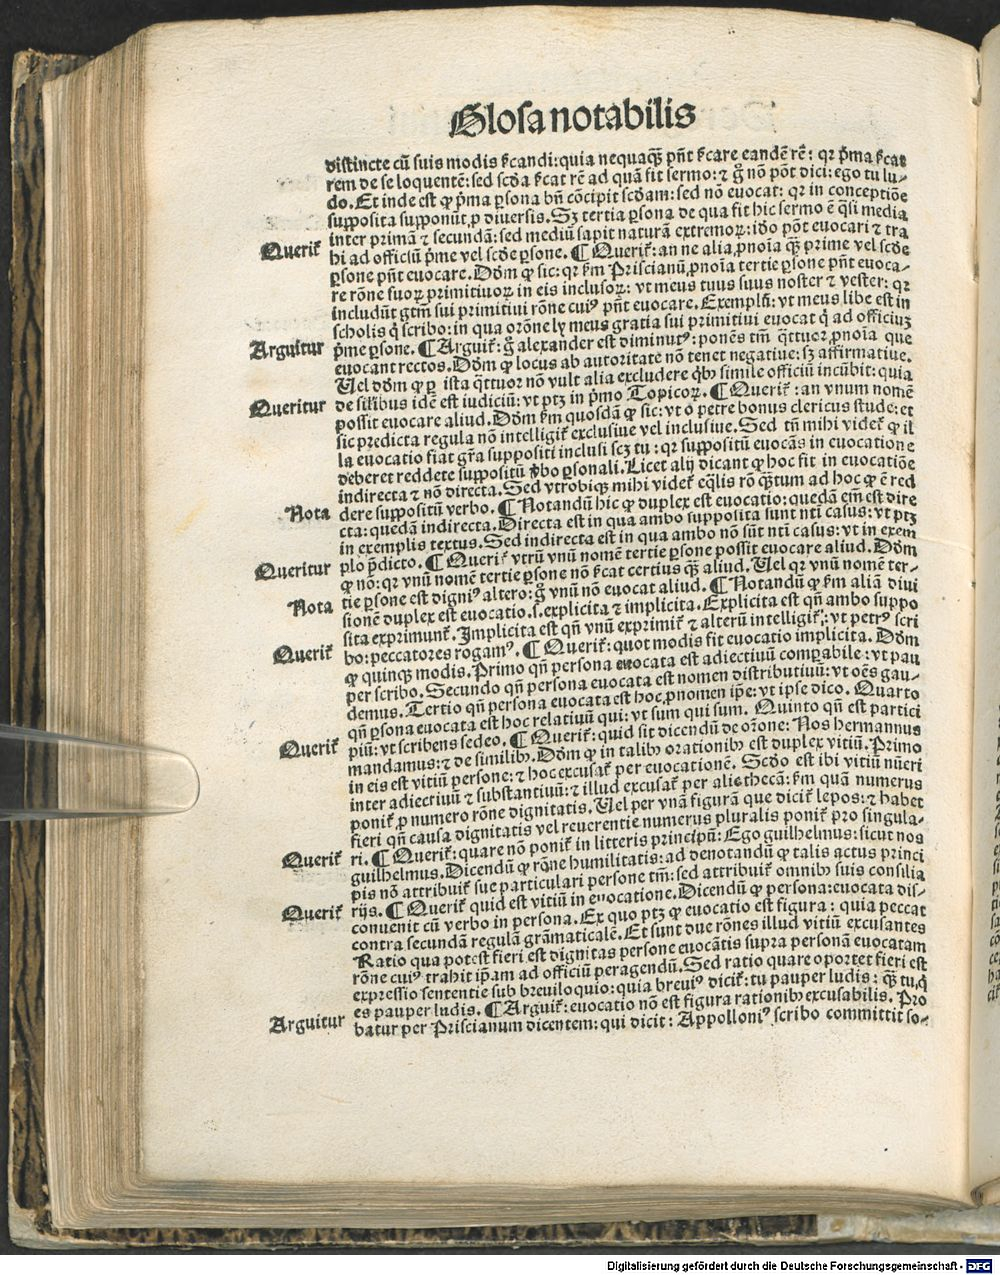 Glosa notabilis
distincte cū suis modis ſcandi: quia nequaq̄ꝫ pñt ſcare eandē rē: qr p̄ma ſcat
rem de se loquentē: sed scd̄a ſcat rē ad quā fit sermo: ⁊ g̊ nō pōt dici: ego tu lu-
do. Et inde est ꝙ p̄ma ꝑsona bñ cōcipit scd̄am: sed nō euocat: qr in conceptiōe
supposita supponūt ꝓ diuersis. Sꝫ tertia ꝑsona de qua fit hic sermo ē q̄si media
inter primā ⁊ secundā: sed mediū sapit naturā extremoꝝ: iō pōt euocari ⁊ tra
Querit̉ hi ad officiū p̄me vel scd̄e ꝑsone. ¶ Querit̉: an ne alia ꝓnoia q̄ꝫ prime vel scd̄e
ꝑsone pñt euocare. Dōm ꝙ sic: qr ſm Priscianū, ꝓnoia tertie ꝑsone pñt euoca-
re rōne suoꝝ primitiuoꝝ in eis inclusoꝝ: vt meus tuus suus noster ⁊ vester: qr
includūt gtm̄ sui primitiui rōne cuiꝰ pñt euocare. Exemplū: vt meus libe est in
scholis q̇ scribo: in qua orōne ly meus gratia sui primitiui euocat q̇ ad officiuꝫ
Arguitur p̄me ꝑsone. ¶ Arguit̉: g̊ alexander est diminutꝰ: ponēs tm̄ q̄ttuor ꝓnoia que
euocant rectos. Dōm ꝙ locus ab autoritate nō tenet negatiue: sꝫ affirmatiue.
Vel dōm ꝙ ꝑ ista q̄ttuor nō vult alia excludere q̇bꝫ simile officiū incūbit: quia
Queritur de silibus idē est iudiciū: vt ptꝫ in p̄mo Topicoꝝ. ¶ Querit̉: an vnum nomē
possit euocare aliud. Dōm ſm quosdā ꝙ sic: vt o petre bonus clericus stude: et
sic predicta regula nō intelligit̉ exclusiue vel inclusiue. Sed tñ mihi videt̉ ꝙ il
la euocatio fiat gr̄a suppositi inclusi scꝫ tu: qr suppositū euocās in euocatione
deberet reddere suppositū v̄bo ꝑsonali. Licet alij dicant ꝙ hoc fit in euocatiōe
indirecta ⁊ nō directa. Sed vtrobiqꝫ mihi videt̉ eq̄lis rō q̄ꝫtum ad hoc ꝙ ē red
Nota dere suppositū verbo. ¶ Notandū hic ꝙ duplex est euocatio: quedā em̄ est dire
cta: quedā indirecta. Directa est in qua ambo supposita sunt nti casus: vt ptꝫ
in exemplis textus. Sed indirecta est in qua ambo nō sūt nti casus: vt in exem
Queritur plo p̄dicto. ¶ Querit̉ vtrū vnū nomē tertie ꝑsone possit euocare aliud. Dōm
ꝙ nō: qr vnū nomē tertie ꝑsone nō ſcat certius q̄ꝫ aliud. Vel qr vnū nomē ter-
Nota tie ꝑsone est digniꝰ altero: g̊ vnū nō euocat aliud. ¶ Notandū ꝙ ſm aliā diui
sionē duplex est euocatio. s. explicita ⁊ implicita. Explicita est qñ ambo suppo
sita exprimunt̉. Implicita est qñ vnū exprimit̉ ⁊ alterū intelligit̉: vt petrꝰ scri
Querit̉ bo: peccatores rogamꝰ. ¶ Querit̉: quot modis fit euocatio implicita. Dōm
ꝙ quinqꝫ modis. Primo qñ persona euocata est adiectiuū comꝑabile: vt pau
per scribo. Secundo qñ persona euocata est nomen distributiuū: vt oēs gau-
demus. Tertio qñ persona euocata est hoc ꝓnomen ip̄e: vt ipse dico. Quarto
qñ ꝑsona euocata est hoc relatiuū qui: vt sum qui sum. Quinto qñ est partici
Querit̉ piū: vt scribens sedeo. ¶ Querit̉: quid sit dicendū de orōne: Nos hermannus
mandamus: ⁊ de similibꝫ. Dōm ꝙ in talibꝫ orationibꝫ est duplex vitiū. Primo
in eis est vitiū ꝑsone: ⁊ hoc excusat̉ per euocationē. Scd̄o est ibi vitiū nūeri
inter adiectiuū ⁊ substantiuū: ⁊ illud excusat̉ per aliothecā: ſm quā numerus
ponit̉ ꝓ numero rōne dignitatis. Vel per vnā figurā que dicit̉ lepos: ⁊ habet
fieri qñ causa dignitatis vel reuerentie numerus pluralis ponit̉ pro singula-
Querit̉ ri. ¶ Querit̉: quare nō ponit̉ in litteris principū: Ego guilhelmus: sicut nos
guilhelmus. Dicendū ꝙ rōne humilitatis: ad denotandū ꝙ talis actus princi
pis nō attribuit̉ sue particulari persone tm̄: sed attribuit̉ omnibꝫ suis consilia
Querit̉ rijs. ¶ Querit̉ quid est vitiū in euocatione. Dicendū ꝙ persona: euocata dis-
conuenit cū verbo in persona. Ex quo ptꝫ ꝙ euocatio est figura: quia peccat
contra secundā regulā grāmaticalē. Et sunt due rōnes illud vitiū excusantes
Ratio qua potest fieri est dignitas persone euocātis supra personā euocatam
rōne cuiꝰ trahit ip̄am ad officiū peragendū. Sed ratio quare oportet fieri est
expressio sententie sub breuiloquio: quia breuiꝰ dicit̉: tu pauper ludis: q̄ꝫ tu, q̇
es pauper ludis. ¶ Arguit̉: euocatio nō est figura rationibꝫ excusabilis. Pro
Arguitur batur per Priscianum dicentem: qui dicit: Appolloniꝰ scribo committit so-
Digitalisierung gefördert durch die Deutsche Forschungsgemeinschaft - DFG